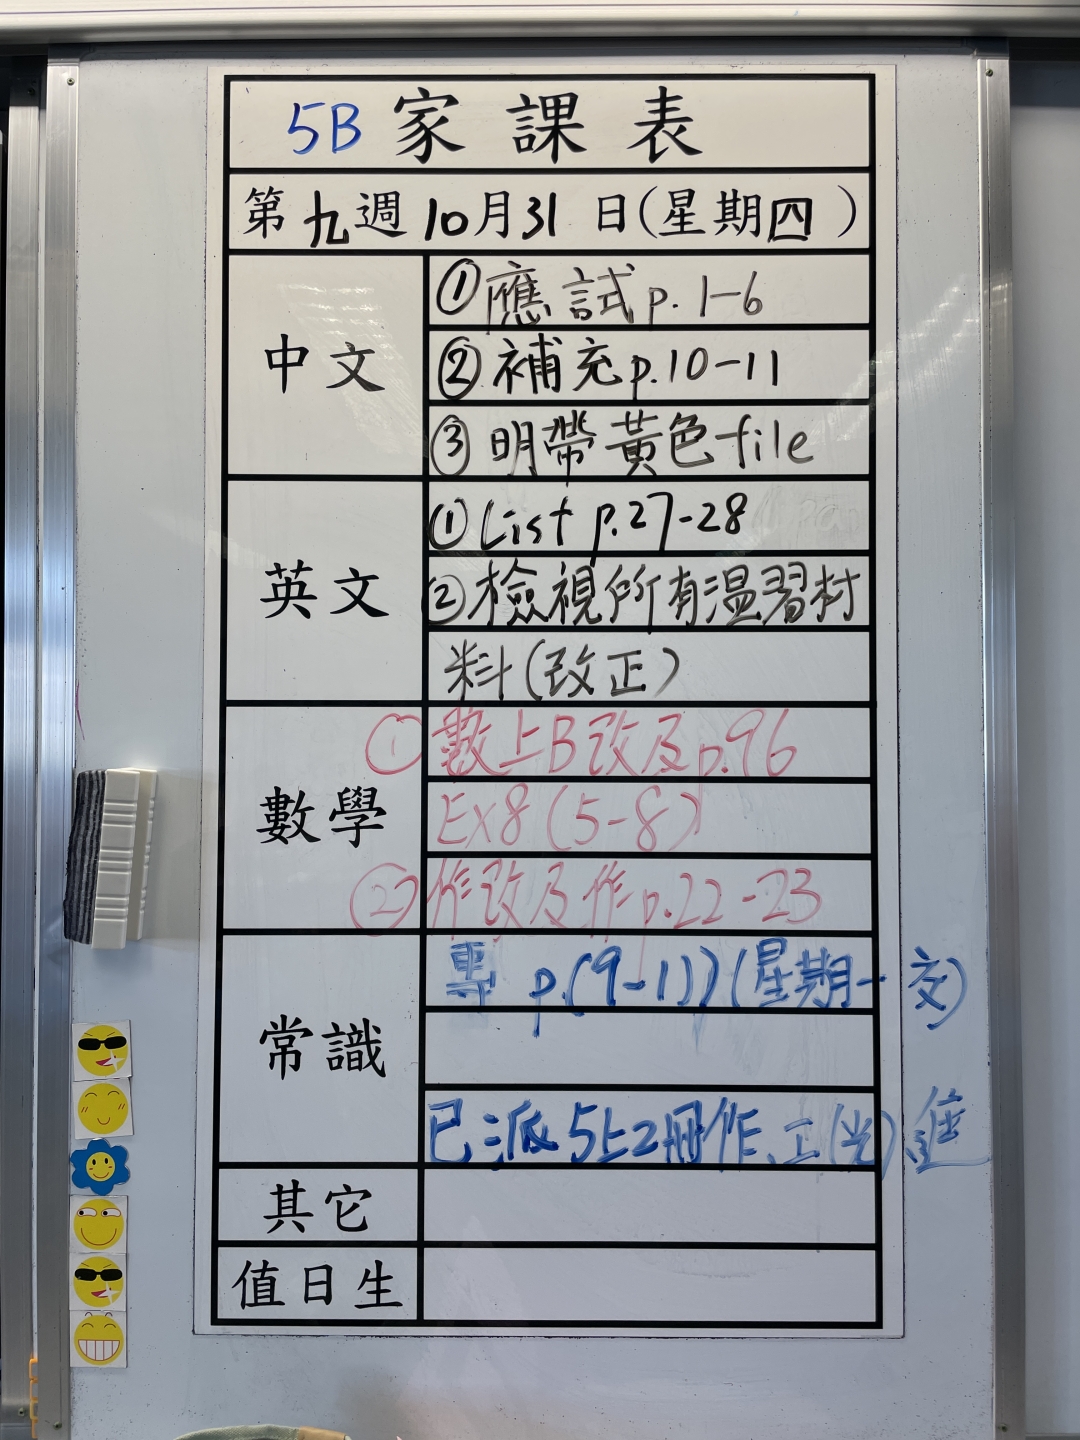 5B 家課表
第九週10月31日(星期四)
中文
①應試p.1-6
②補充p.10-11
③明帶黃色file
英文
①List p.27-28
②檢視所有溫習材
料(改正)
數學
①數上B改及p.96
Ex8(5-8)
②作改及作p.22-23
常識
專 p.(9-11)(星期一交)
已派5上2冊作、工(光)
其它
值日生